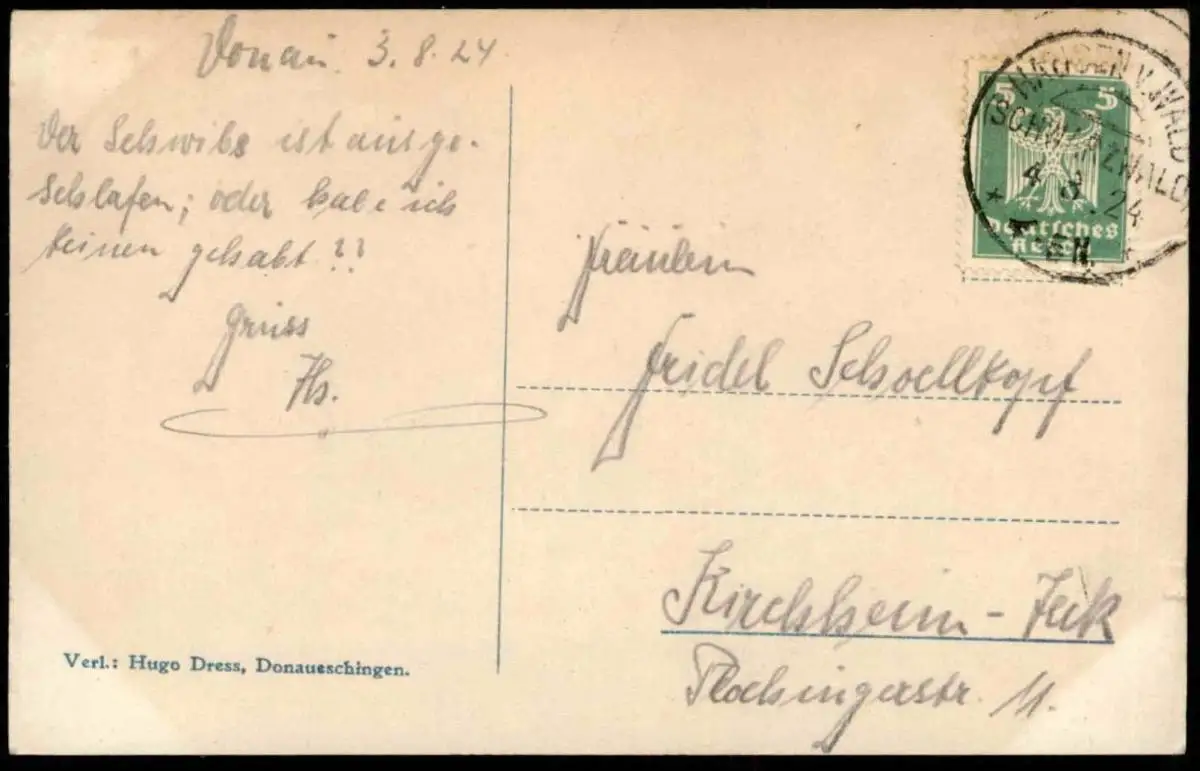 Donau 3.8.24
Der Schwibs ist ausge-
schlafen; oder habe ich
keinen gehabt??
Gruss
Hs.
Fräulein
Fridel Schoellkopf
Kirchheim-Teck
Plochingerstr. 11.
Verl.: Hugo Dress, Donaueschingen.
5 5
Deutsches
Reich
V. WALD
SCHWARZWALD
4 8 .24